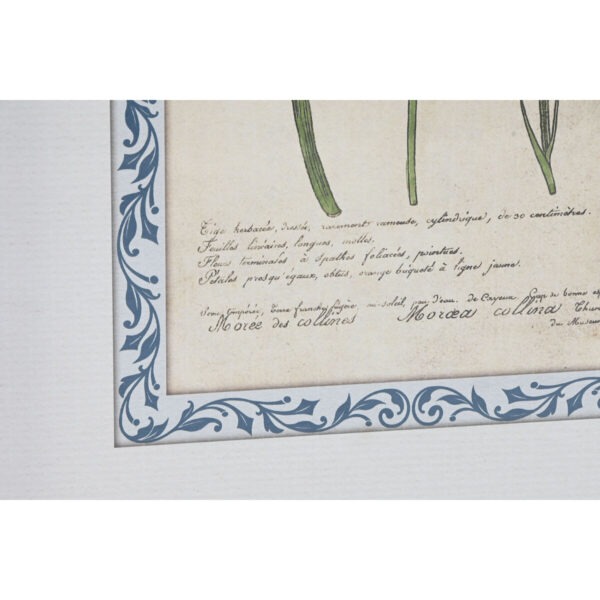 Tige herbacée, dressée, rarement rameuse, cylindrique, de 30 centimètres.
Feuilles linéaires, longues, molles.
Fleurs terminales à spathes foliacés, pointues.
Pétales presqu'égaux, obtus, orange briqueté à ligne jaune.
Serre tempérée, Terre franche légère, au soleil, peu d'eau. de Cayeux bonne
Morée des collines Moræa collina Thun
du Museum